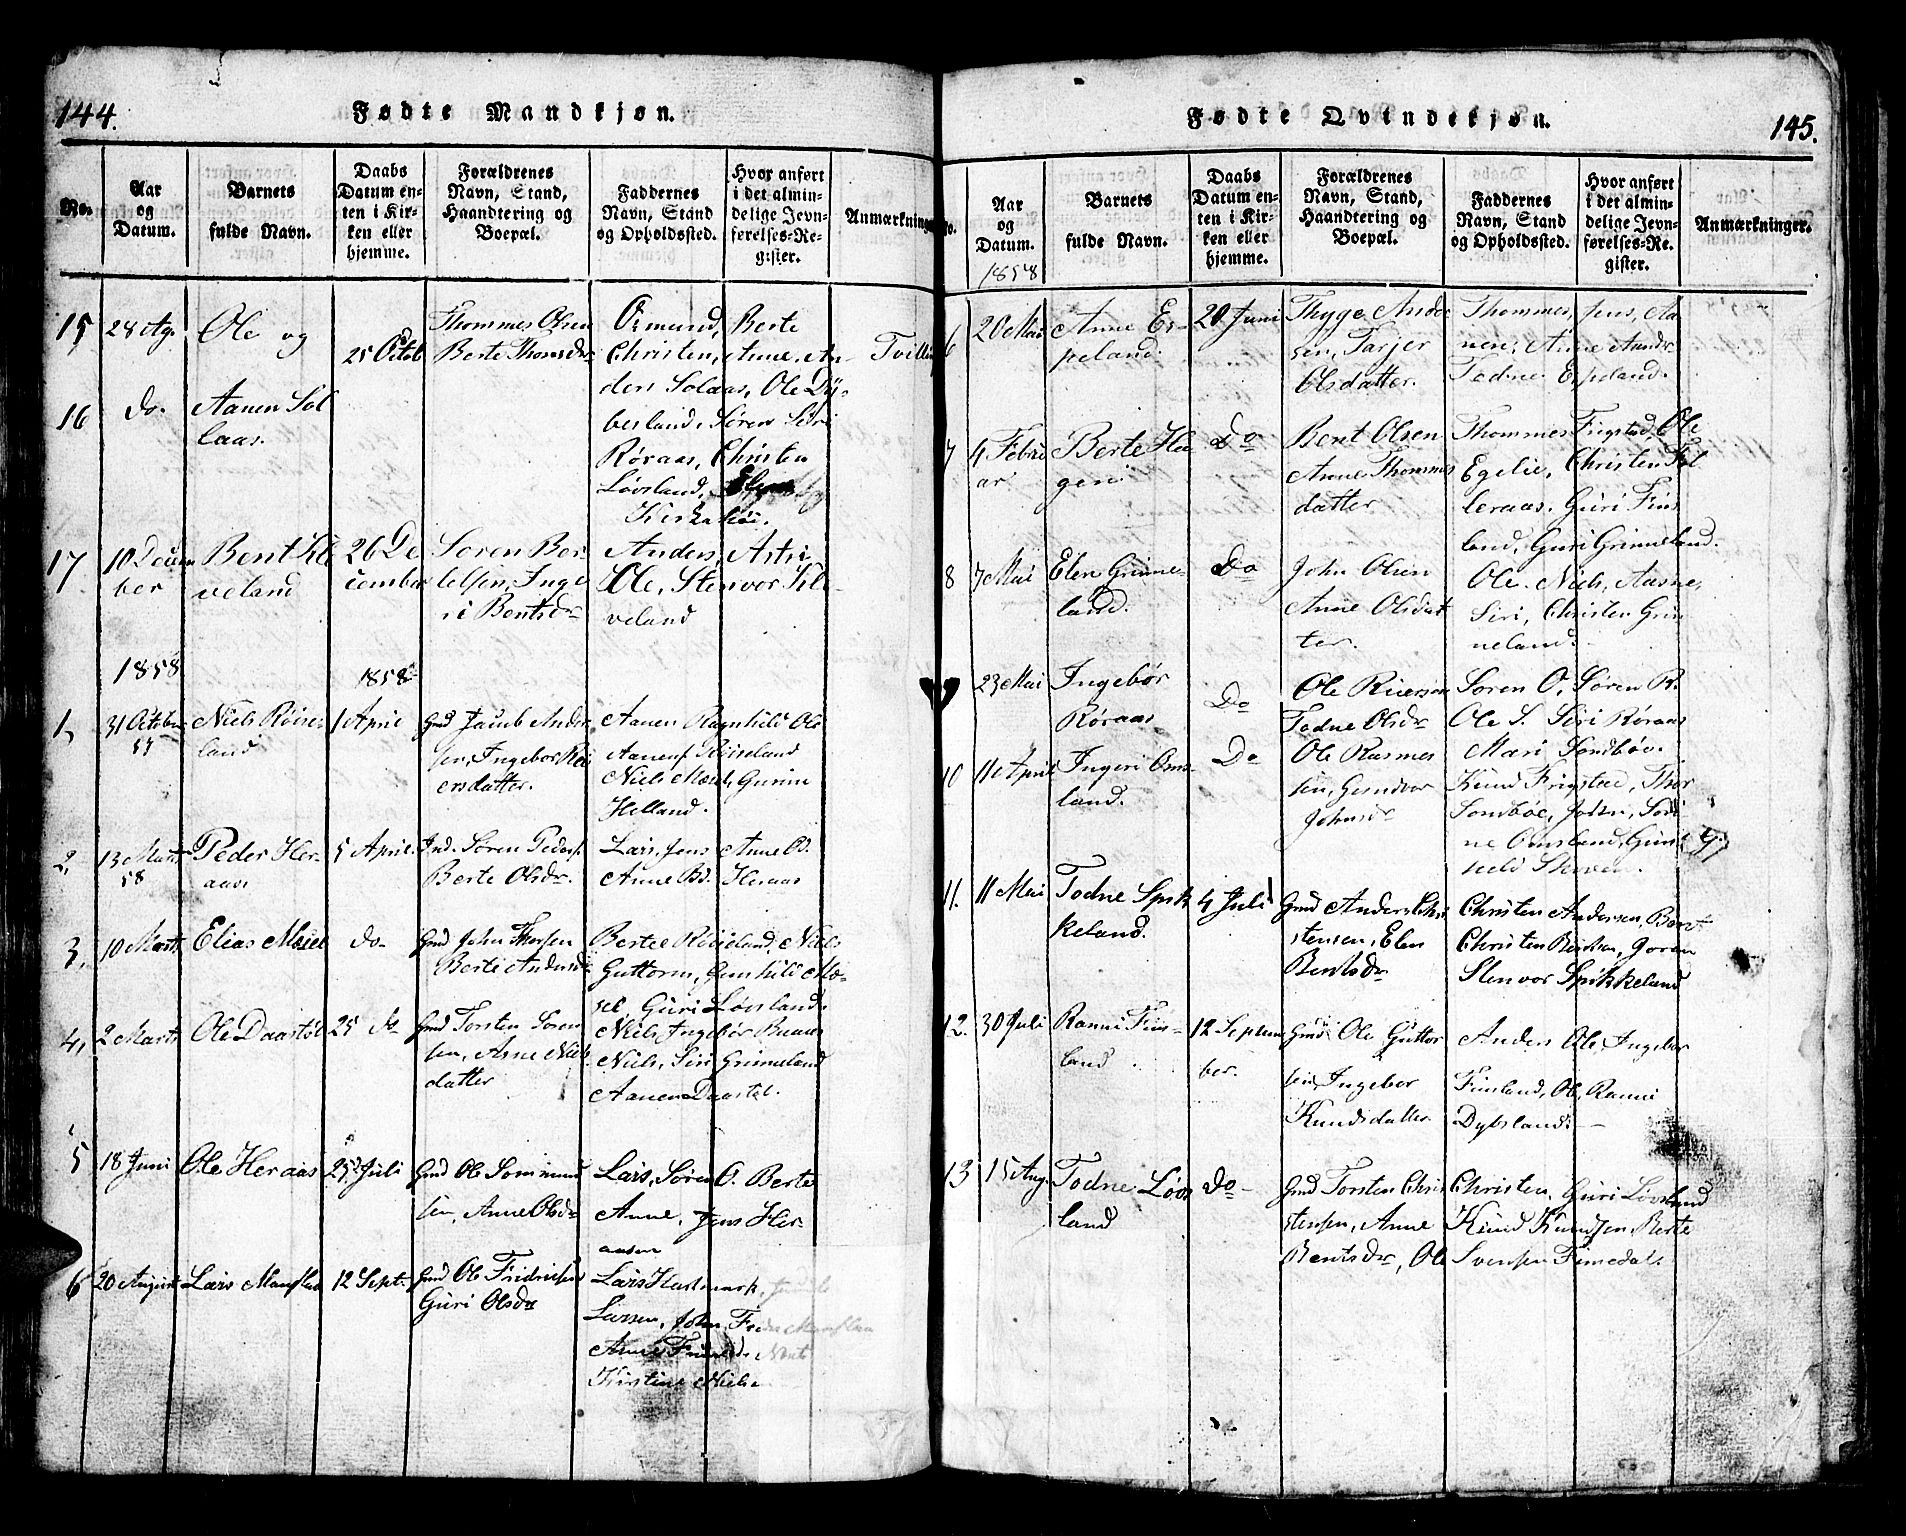 144.
Fødte Mandkjøn.
No.
Aar og Datum.
Barnets fulde Navn.
Daabs Datum enten i Kirken eller hjemme.
Forældrenes Navn, Stand, Haandtering og Boepæl.
Faddernes Navn, Stand og Opholdssted.
Hvor anført i det almindelige Jevnførelses-Register.
Anmærkninger
15
28 Ag.
Ole og
25 Octob
Thommes Olsen
Berte Thomsdr
Ormund, Berte
Christen, Anne, An-
ders Solaas, Ole Dÿ-
besland, Søren Siri
Røraas, Christen
Løvsland,
Kirkehei.
Tvilling
16
do.
Aanen Sol
laas.
17.
10 Decem
ber
Bent Kle
veland
26 De
cember
Søren Ber
telsen, Inge
ri Bentsdr
Anders, Astri
Ole, Stenvor Kle
veland
1858
1858
1,
31 October
57
Niels Röises
land
1 April
Gmd Jacob Ander
sen, Ingebor Rei
ersdatter.
Aanen Ragnhild Ole
Aanens Röiseland
Niels Mæsel, Gunim
Helland.
2,
13 Marts
58
Peder Her
aas
5 April.
Ind. Søren Peders.
Berte Olsdr.
Lars, Jens Anne O.
Anne Bd. Heraas
3,
10 Marts.
Elias Mæsel
do-
Gmd John Thorsen
Berte Andersd
Bertel Röiseland, Niels
Guttorm, Gunhild Mæ-
sel, Guri Løvsland.
4,
2 Marts
Ole Daastöl
25 do
Gmd Torsten Soren
sen, Anne Niels
datter
Niels, Ingebör Buaas
Niels, Siri Grimeland
Aanen Daastöl.
5
18 Juni
Ole Heraas
25 Juli
Gmd Ole Sommun
sen, Anne Olsdr
Lars, Søren O. Berte
Anne, Jens Her
aasen
6
20 August
Lars Monsland
12 Sept.
Gmd Ole Fridrichsen
Guri Olsdr
Lars Hastmark,
Larsen, John
Anne
Kirstine Niels
145.
Fødte Qvindekjøn.
No.
Aar og Datum.
1858
Barnets fulde Navn.
Daabs Datum enten i Kirken eller hjemme.
Forældrenes Navn, Stand, Haandtering og Boepæl.
Faddernes Navn, Stand og Opholdssted.
Hvor anført i det almindelige Jevnførelses-Register.
Anmærkninger.
6
20 Mai
Anne Es-
peland.
20 Juni
Thygge Ander
sen, Tarjer
Olsdatter.
Thommes, Jens, Aa
nen, Anne Andr
Todne Espeland.
7
4 Febru
ar
Berte Hau
gen
Do
Bent Olsen
Anne Thommes
datter
Thommes Frigstad, Ole
Egelie, Christen Fol
leraas, Guri Fins
land, Guri Grimeland.
8
7 Mai
Elen Grime-
land.
Do
John Olsen
Anne Olsdat
ter.
Ole, Niels, Aasne,
Siri, Christen Grim
meland.
9
23 Mai
Ingebør
Røraas
Do
Ole Reierson
Todne Olsdr
Søren O, Søren R.
Ole S. Siri Røraas
Mari Sondböe.
10
11 April
Ingeri Oms-
land.
Do
Ole Rasmes
sen, Gundvor
Johnsdr
Knud Frigsted, Thor
Sondböe, John, Sori
ne Omsland, Gun
held Skoven.
11.
11 Mai
Todne Spik
keland.
4 Juli
Gmd Anders Chri
stensen, Elen
Bentsdr
Christen Andersen, Bent
Christen Bentsen, Joren
Stenvor Spikkeland
12.
30 Juli
Ranni Fins-
land
12 Septem
ber.
Gmd Ole Guttor
sen Ingebor
Knudsdatter
Anders Ole, Ingebor
Finsland, Ole, Ranni
Dybsland.
13
15 Aug.
Todne Løvs
land
Do-
Gmd Torsten Chris
stensen, Anne
Bentsdr, Ole
Christen, Guri Løvsland
Knud Knudsen, Berte
Svensen Finsdal.